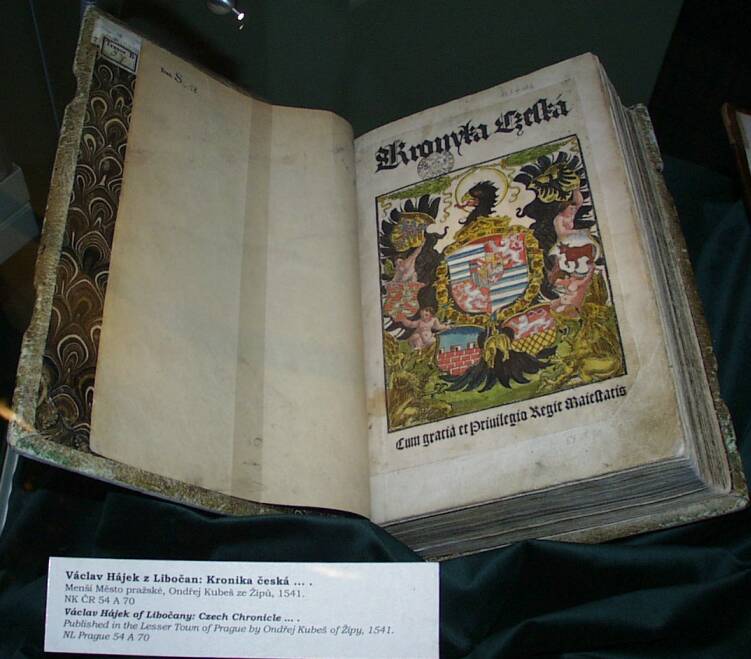 Kronyka Czeská
Cum gracia et Priuilegio Regie Maiestatis
Václav Hájek z Libočan: Kronika česká ... .
Menší Město pražské, Ondřej Kubeš ze Žípů, 1541.
NK ČR 54 A 70
Václav Hájek of Libočany: Czech Chronicle ... .
Published in the Lesser Town of Prague by Ondřej Kubeš of Žípy, 1541.
NL Prague 54 A 70